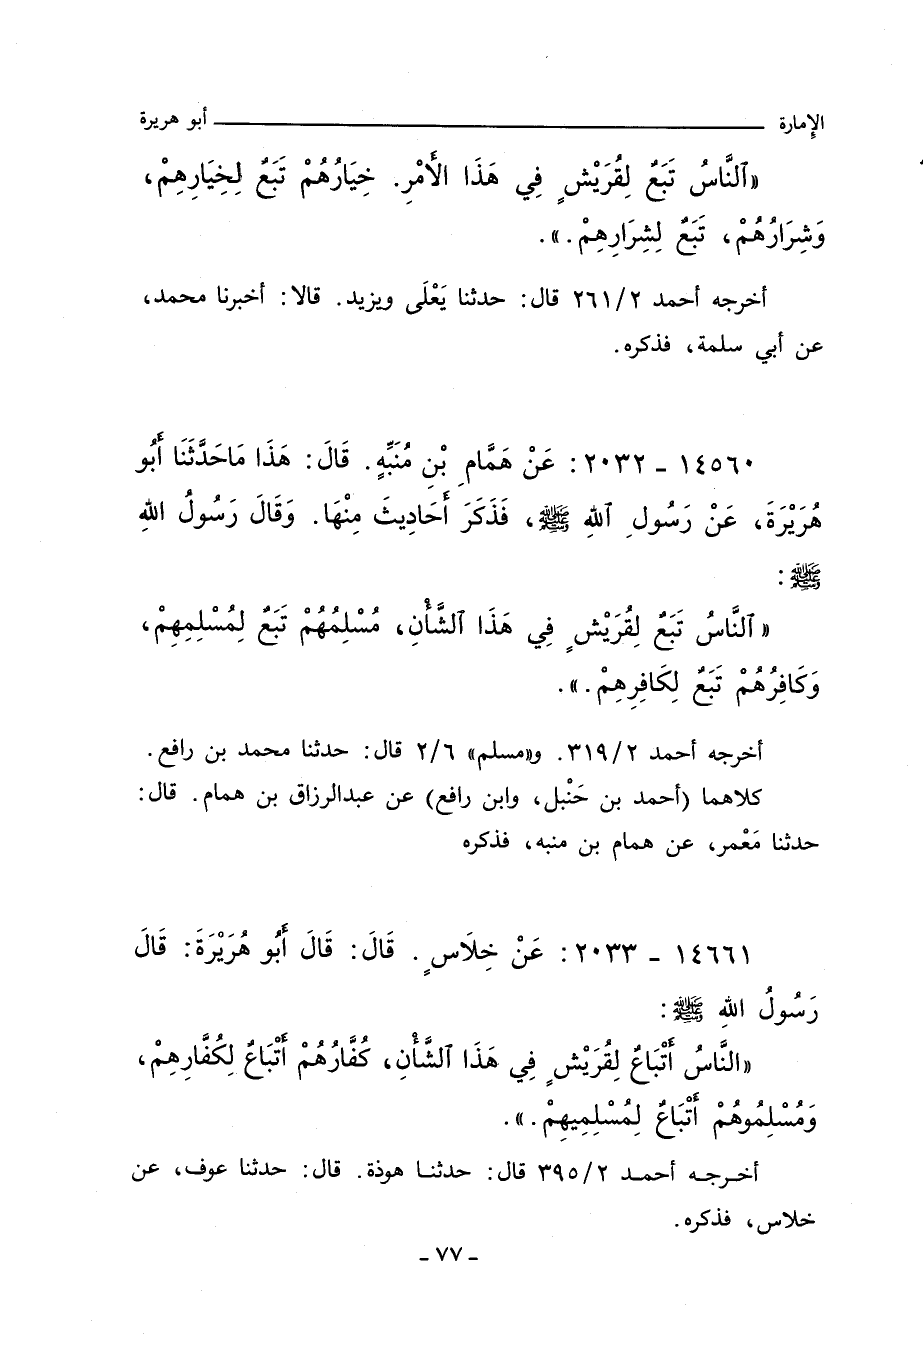 الإمارة ــــــــــــــــــــ أبو هريرة
«ٱلنَّاسُ تَبَعٌ لِقُرَيْشٍ فِي هَذَا الأَمْرِ. خِيَارُهُمْ تَبَعٌ لِخِيَارِهِمْ،
وَشِرَارُهُمْ، تَبَعٌ لِشِرَارِهِمْ.».
أخرجه أحمد ٢/٢٦١ قال: حدثنا يَعْلَى ويزيد. قالا: أخبرنا محمد،
عن أبي سلمة، فذكره.
١٤٥٦٠ ــ ٢٠٣٢: عَنْ هَمَّامِ بْنِ مُنَبِّهٍ. قَالَ: هَذَا مَاحَدَّثَنَا أَبُو
هُرَيْرَةَ، عَنْ رَسُولِ ٱللهِ ﷺ، فَذَكَرَ أَحَادِيثَ مِنْهَا. وَقَالَ رَسُولُ اللهِ
ﷺ:
«ٱلنَّاسُ تَبَعٌ لِقُرَيْشٍ فِي هَذَا ٱلشَّأْنِ، مُسْلِمُهُمْ تَبَعٌ لِمُسْلِمِهِمْ،
وَكَافِرُهُمْ تَبَعٌ لِكَافِرِهِمْ.».
أخرجه أحمد ٢/٣١٩. و«مسلم» ٢/٦ قال: حدثنا محمد بن رافع.
كلاهما (أحمد بن حَنْبل، وابن رافع) عن عبدالرزاق بن همام. قال:
حدثنا مَعْمر، عن همام بن منبه، فذكره
١٤٦٦١ ــ ٢٠٣٣: عَنْ خِلَاسٍ. قَالَ: قَالَ أَبُو هُرَيْرَةَ: قَالَ
رَسُولُ اللهِ ﷺ:
«النَّاسُ أَتْبَاعٌ لِقُرَيْشٍ فِي هَذَا ٱلشَّأْنِ، كُفَّارُهُمْ أَتْبَاعٌ لِكُفَّارِهِمْ،
وَمُسْلِمُوهُمْ أَتْبَاعٌ لِمُسْلِمِيهِمْ.».
أخرجه أحمد ٢/٣٩٥ قال: حدثنا هوذة. قال: حدثنا عوف، عن
خلاس، فذكره.
ــ ٧٧ ــ